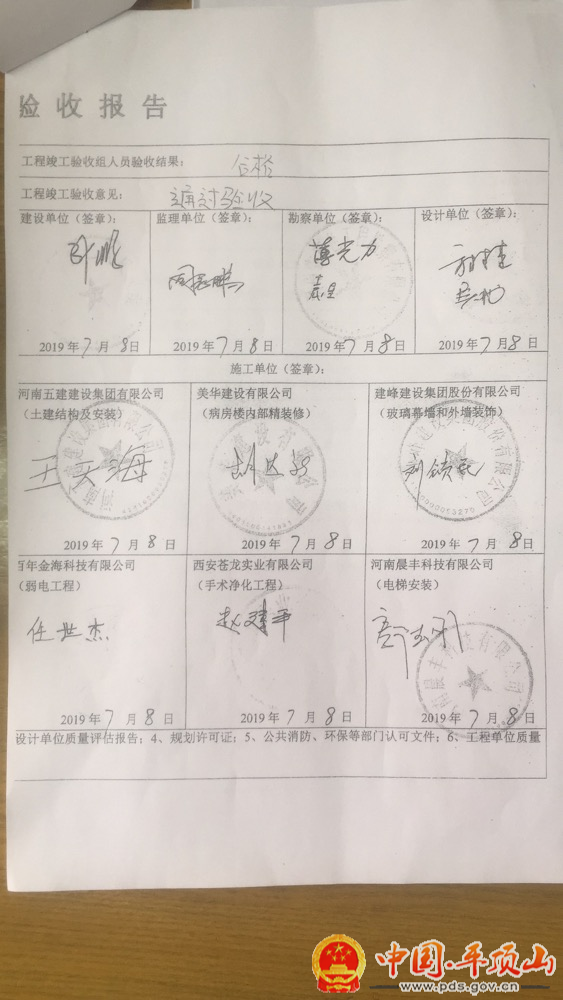 验收报告
工程竣工验收组人员验收结果： 合格
工程竣工验收意见： 通过验收
建设单位（签章）： 监理单位（签章）： 勘察单位（签章）： 设计单位（签章）：
2019年7月8日 2019年7月8日 2019年7月8日 2019年7月8日
施工单位（签章）：
河南五建建设集团有限公司 美华建设有限公司 建峰建设集团股份有限公司
（土建结构及安装） （病房楼内部精装修） （玻璃幕墙和外墙装饰）
2019年7月8日 2019年7月8日 2019年7月8日
百年金海科技有限公司 西安苍龙实业有限公司 河南晨丰科技有限公司
（弱电工程） （手术净化工程） （电梯安装）
任世杰 赵建平
2019年7月8日 2019年7月8日 2019年7月8日
设计单位质量评估报告；4、规划许可证；5、公共消防、环保等部门认可文件；6、工程单位质量
中国·平顶山
www.pds.gov.cn